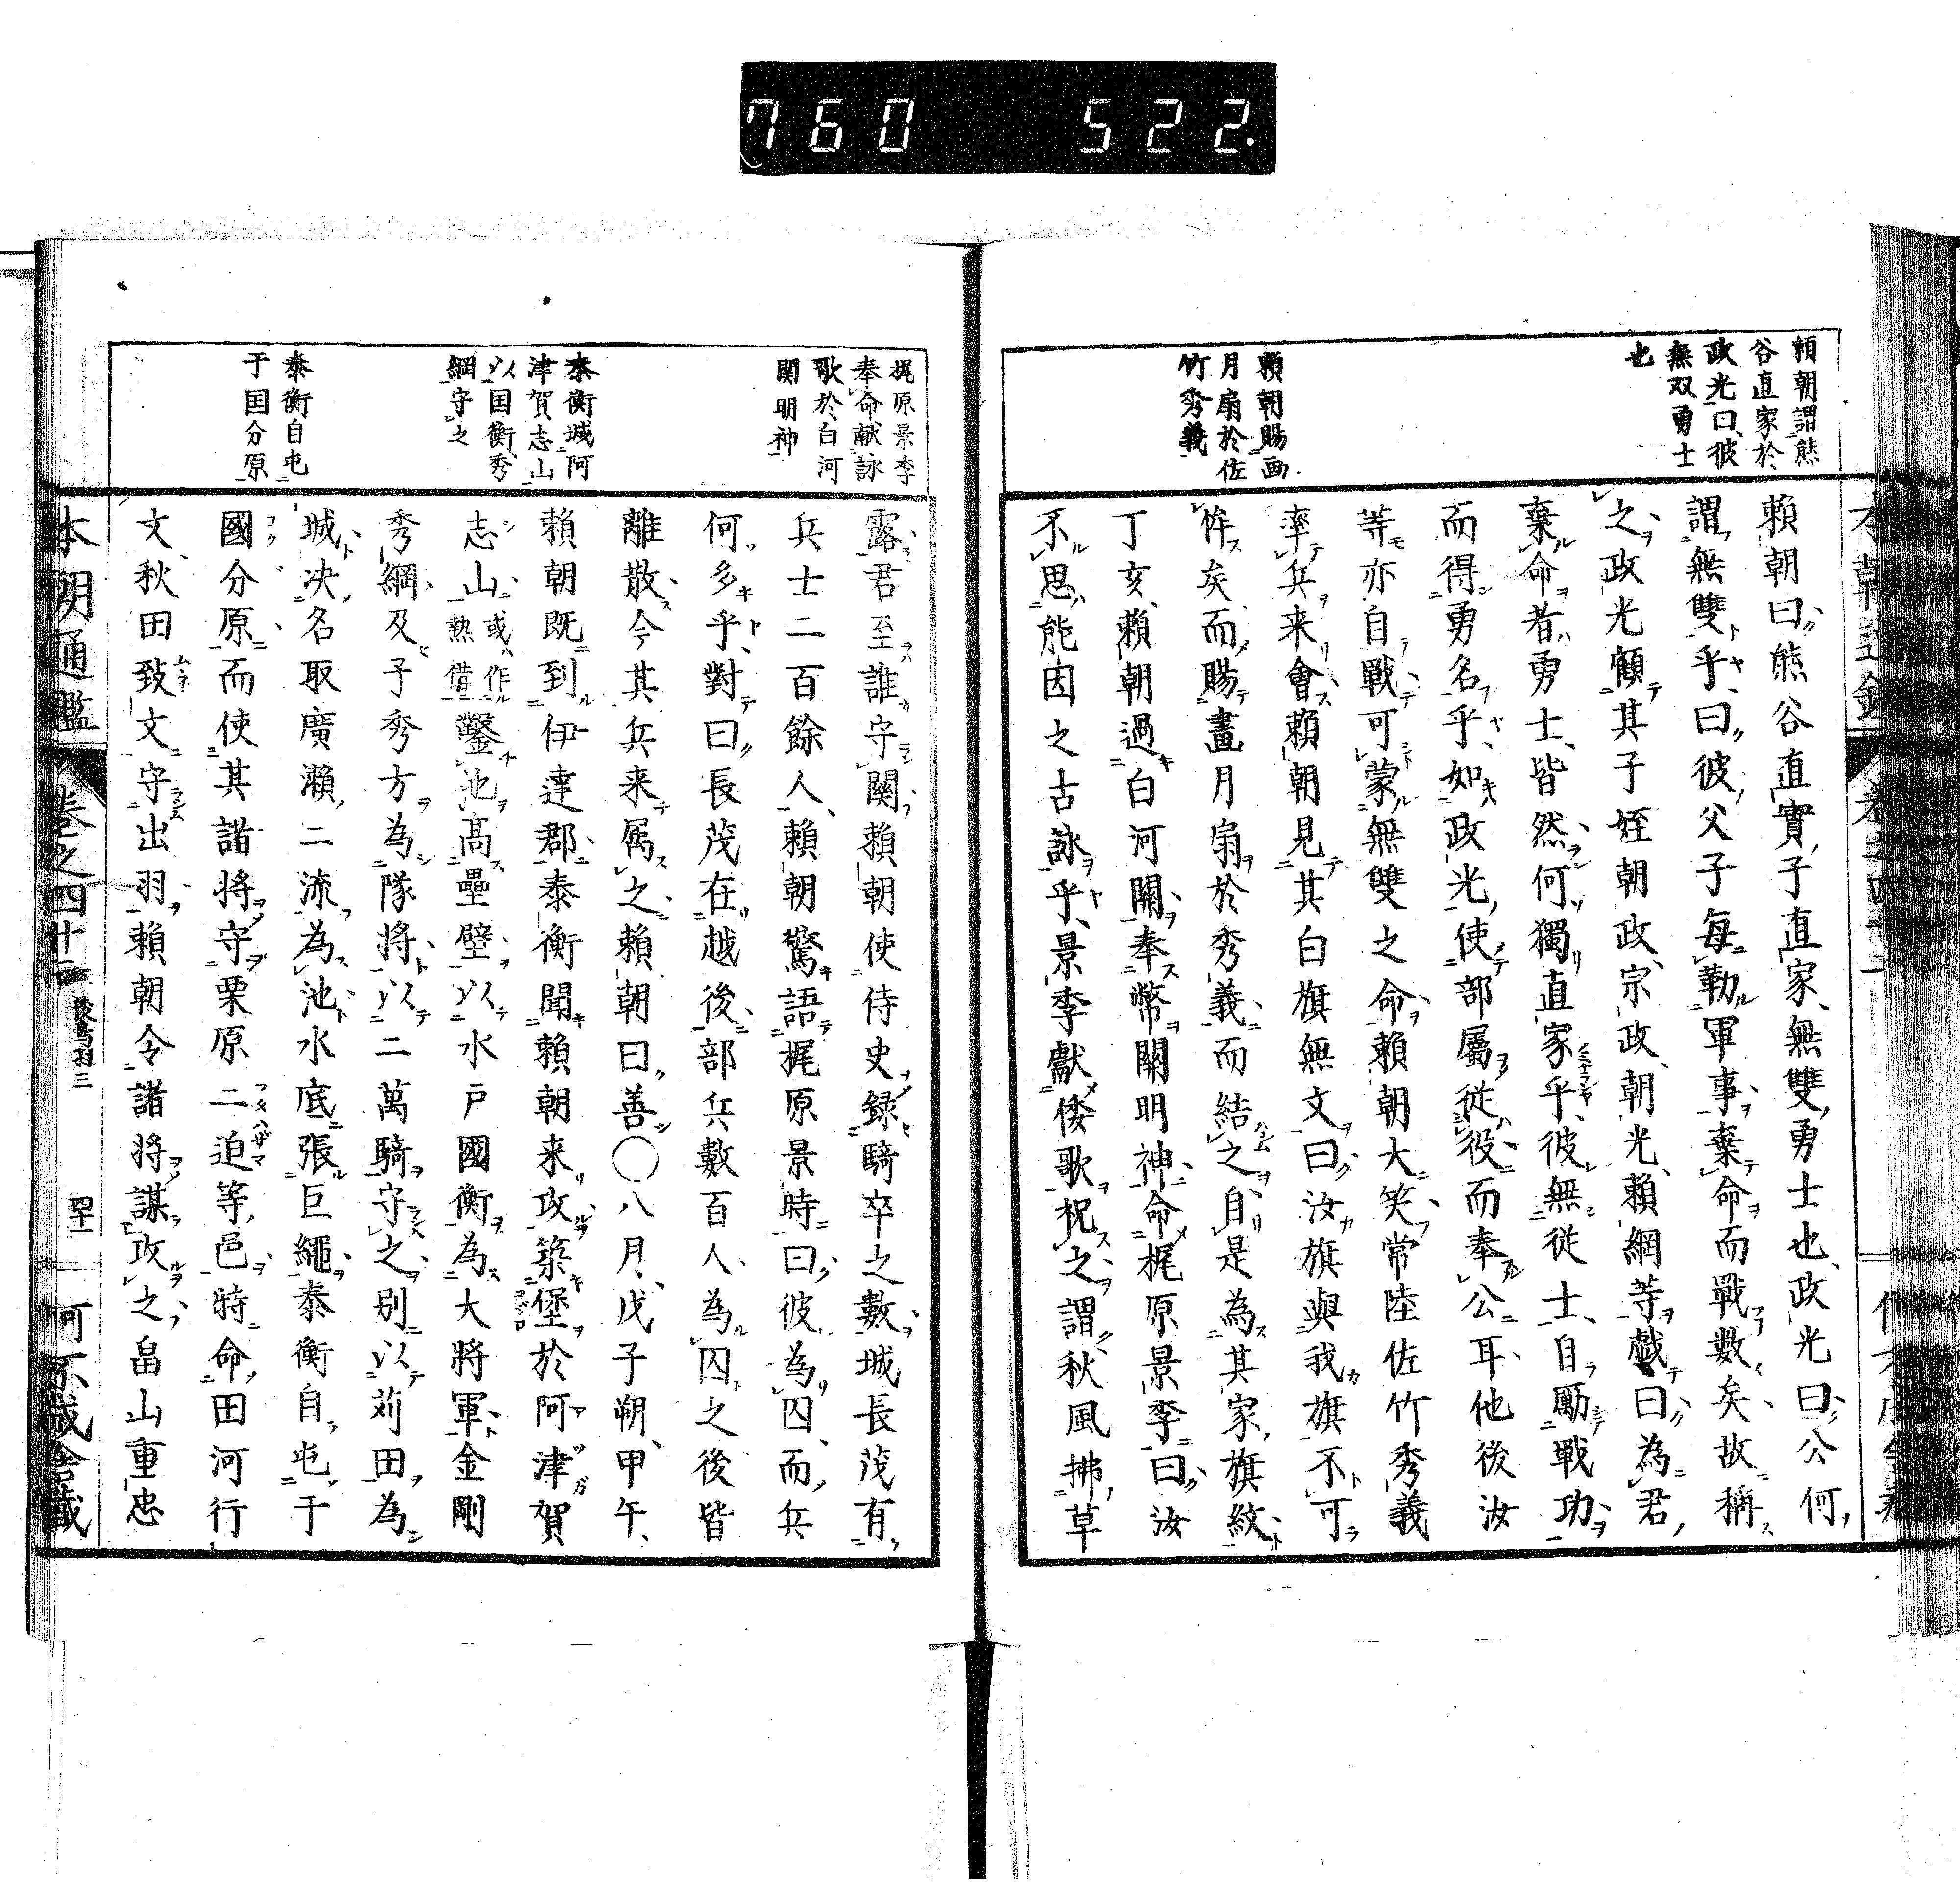 760 522.
頼朝謂熊
谷直家於
政光曰彼
無双勇士
也
頼朝賜画
月扇於佐
竹秀義
頼朝曰熊谷直實子直家無雙勇士也政光曰公何
謂無雙乎曰彼父子毎勒軍事棄命而戰數矣故稱
之政光顧其子姪朝政宗政朝光頼綱等戯曰為君
棄命者勇士皆然何獨直家乎彼無従士自勵戰功
而得勇名乎如政光使部屬従役而奉公耳他後汝
等亦自戰可蒙無雙之命頼朝大笑常陸佐竹秀義
率兵来會頼朝見其白旗無文曰汝旗與我旗不可
侔矣而賜畫月扇於秀義而結之自是為其家旗紋
丁亥頼朝過白河關奉幣關明神命梶原景季曰汝
不思能因之古詠乎景季獻倭歌祝之謂秋風拂草
梶原景季
奉命献詠
歌於白河
関明神
泰衡城阿
津賀志山
以国衡秀
綱守之
泰衡自屯
于国分原
露君至誰守關頼朝使侍史録騎卒之數城長茂有
兵士二百餘人頼朝驚語梶原景時曰彼為囚而兵
何多乎對曰長茂在越後部兵數百人為囚之後皆
離散今其兵来属之頼朝曰善〇八月戊子朔甲午
頼朝既到伊達郡泰衡聞頼朝来攻築堡於阿津賀
志山或作熱借鑿池高壘壁以水戸國衡為大將軍金剛
秀綱及子秀方為隊將以二萬騎守之別以苅田為
城决名取廣瀬二流為池水底張巨繩泰衡自屯于
國分原而使其諸將守栗原二迫等邑時命田河行
文秋田致文守出羽頼朝令諸將謀攻之畠山重忠
本朝通鑑 卷之四十二 後鳥羽三 四十一